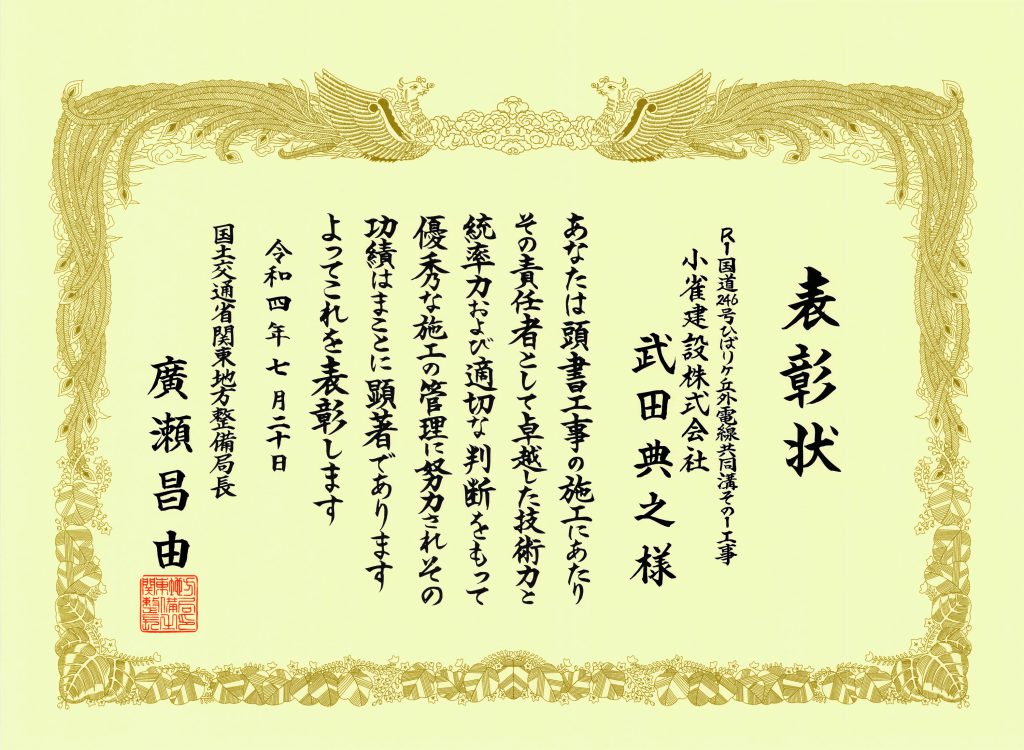 表彰状
R1国道246号ひばりヶ丘外電線共同溝その1工事
小雀建設株式会社
武田典之様
あなたは頭書工事の施工にあたり
その責任者として卓越した技術力と
統率力および適切な判断をもって
優秀な施工の管理に努力されその
功績はまことに顕著であります
よってこれを表彰します
令和四年七月二十日
国土交通省関東地方整備局長
廣瀬昌由